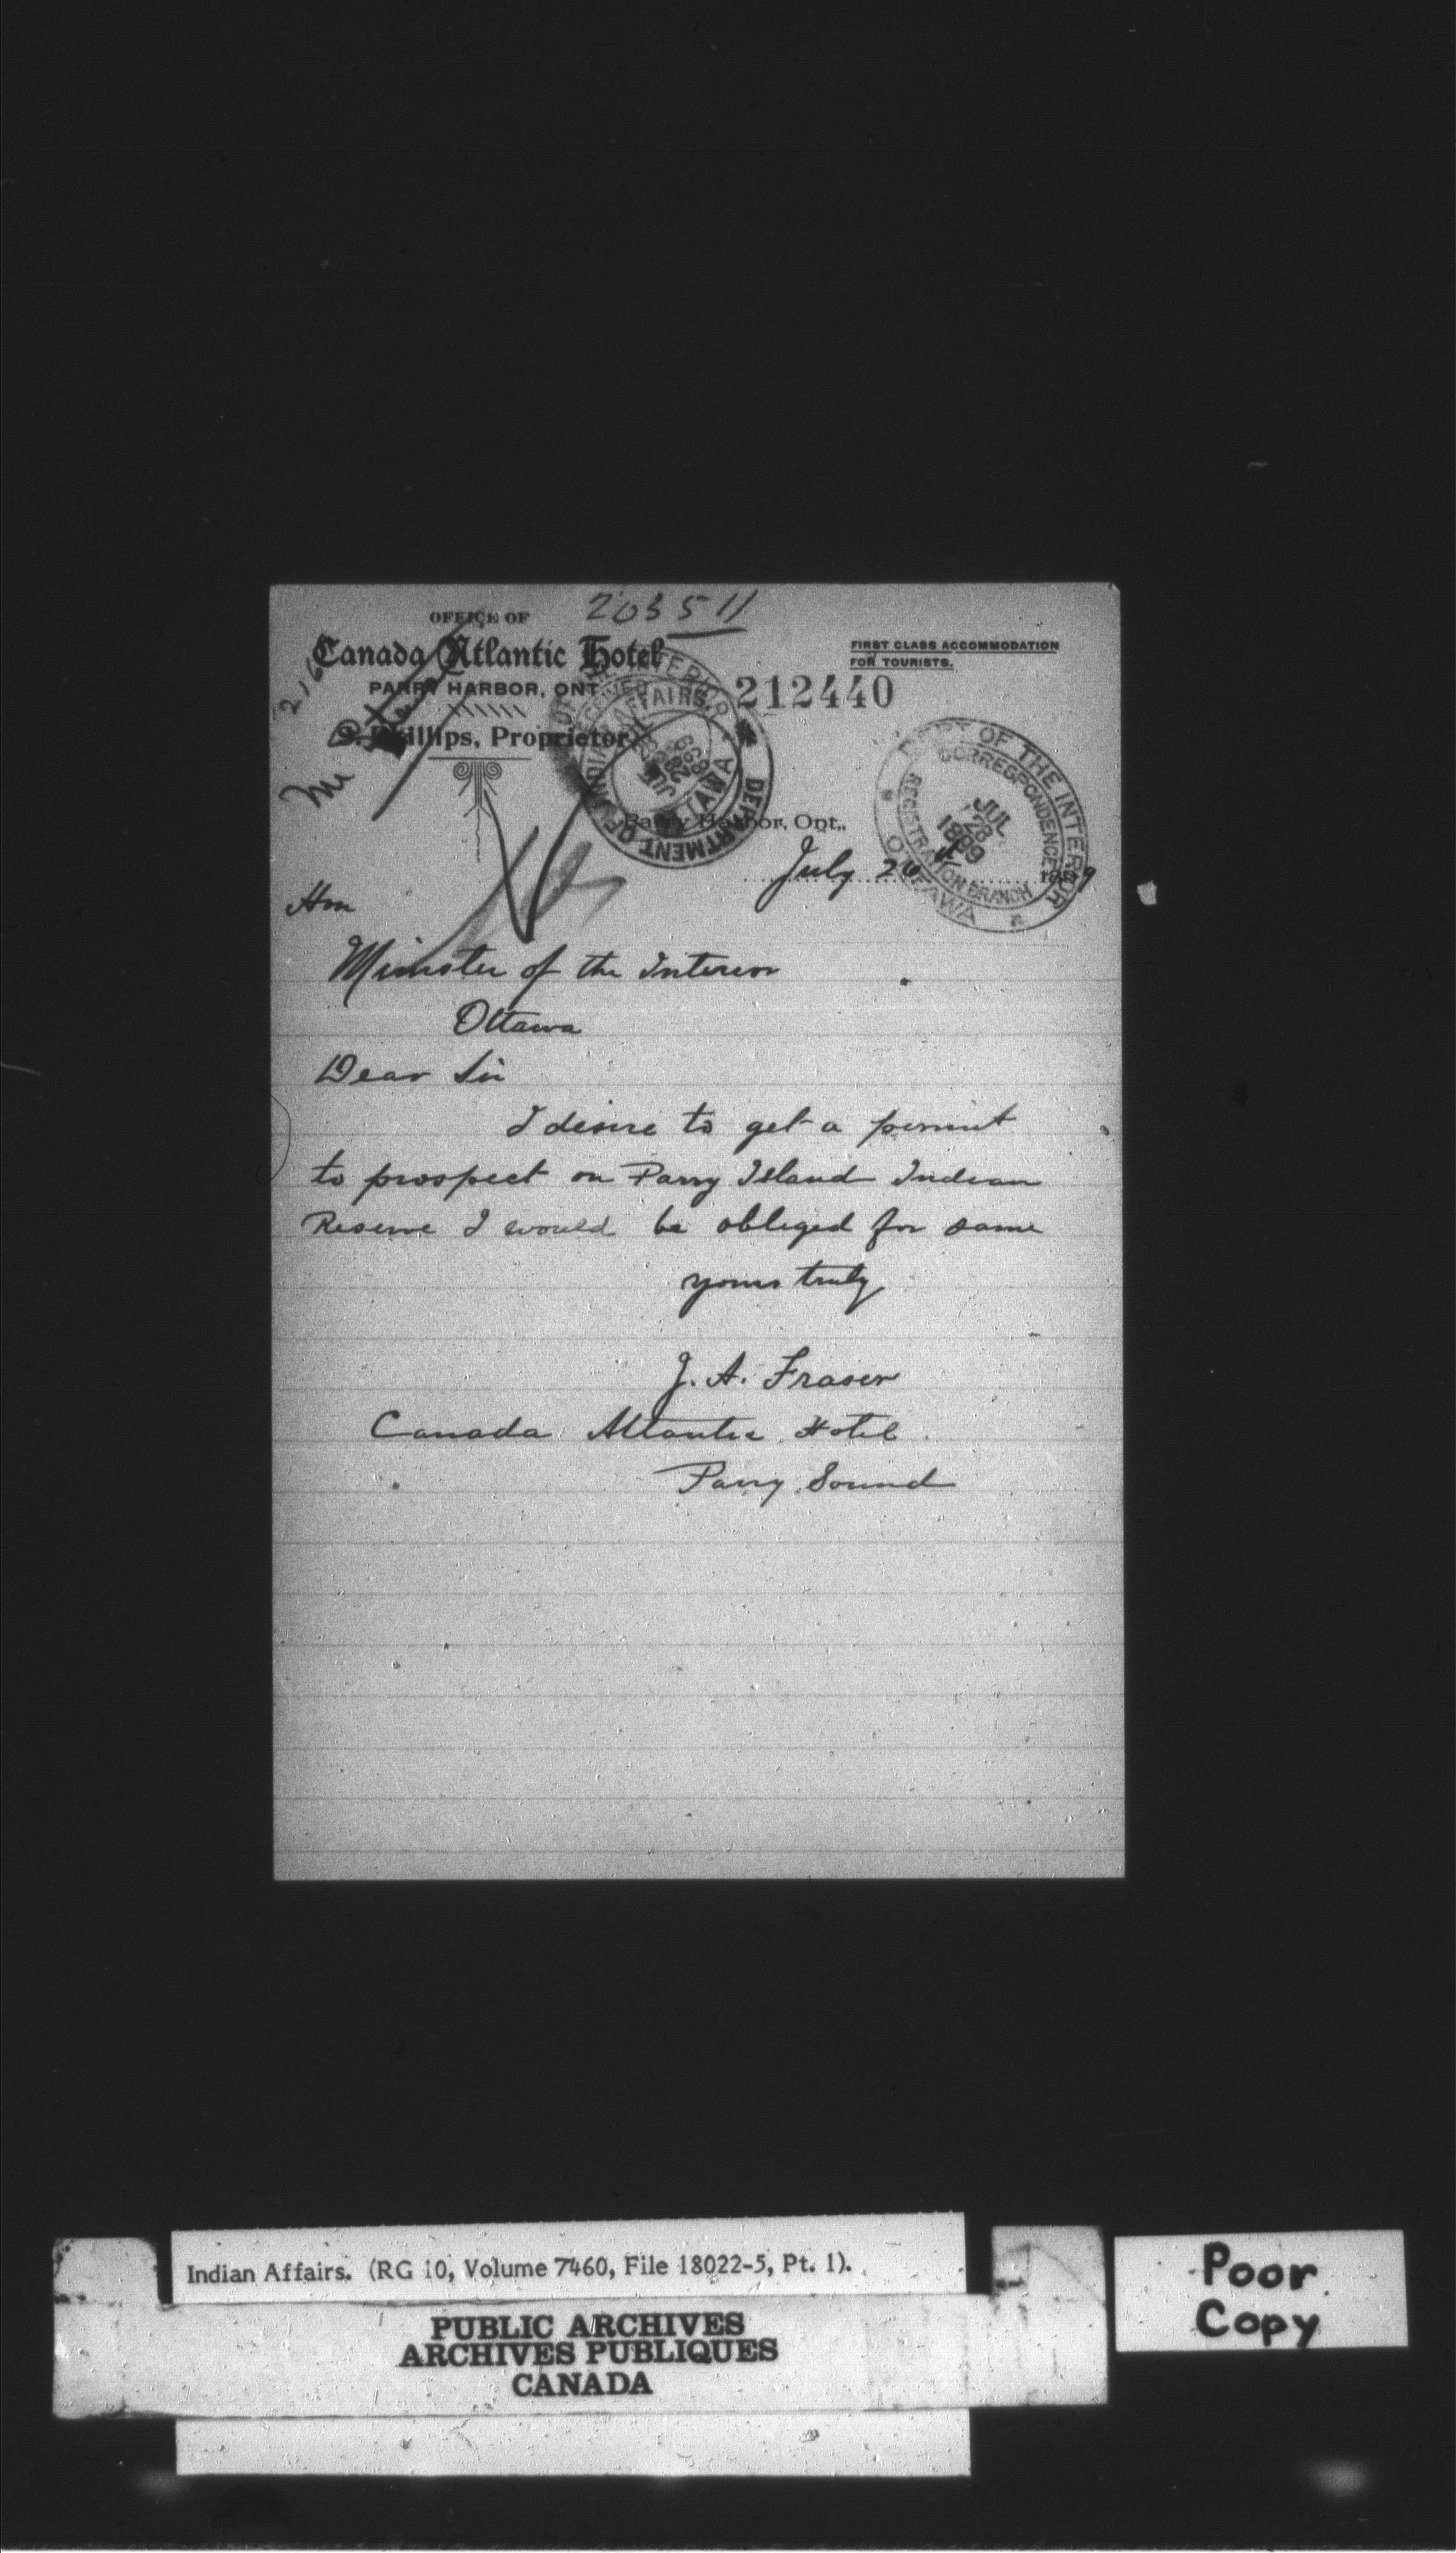 20351 1
OFFICE OF
Canada Atlantic Hotel
PARRY HARBOR, ONT
S. Phillips, Proprietor
FIRST CLASS ACCOMMODATION
FOR TOURISTS.
212440
DEPARTMENT OF INDIAN AFFAIRS
RECEIVED
OTTAWA
DEPT OF THE INTERIOR
CORRESPONDENCE
REGISTRATION BRANCH
JUL
28
1899
OTTAWA
Parry Harbor, Ont.,
July 26 1899
Hon
Minister of the Interior
Ottawa
Dear Sir
I desire to get a permit
to prospect on Parry Island Indian
Reserve I would be obliged for same
yours truly
J. A. Fraser
Canada Atlantic Hotel
Parry Sound
Indian Affairs. (RG 10, Volume 7460, File 18022-5, Pt. 1).
PUBLIC ARCHIVES
ARCHIVES PUBLIQUES
CANADA
Poor
Copy